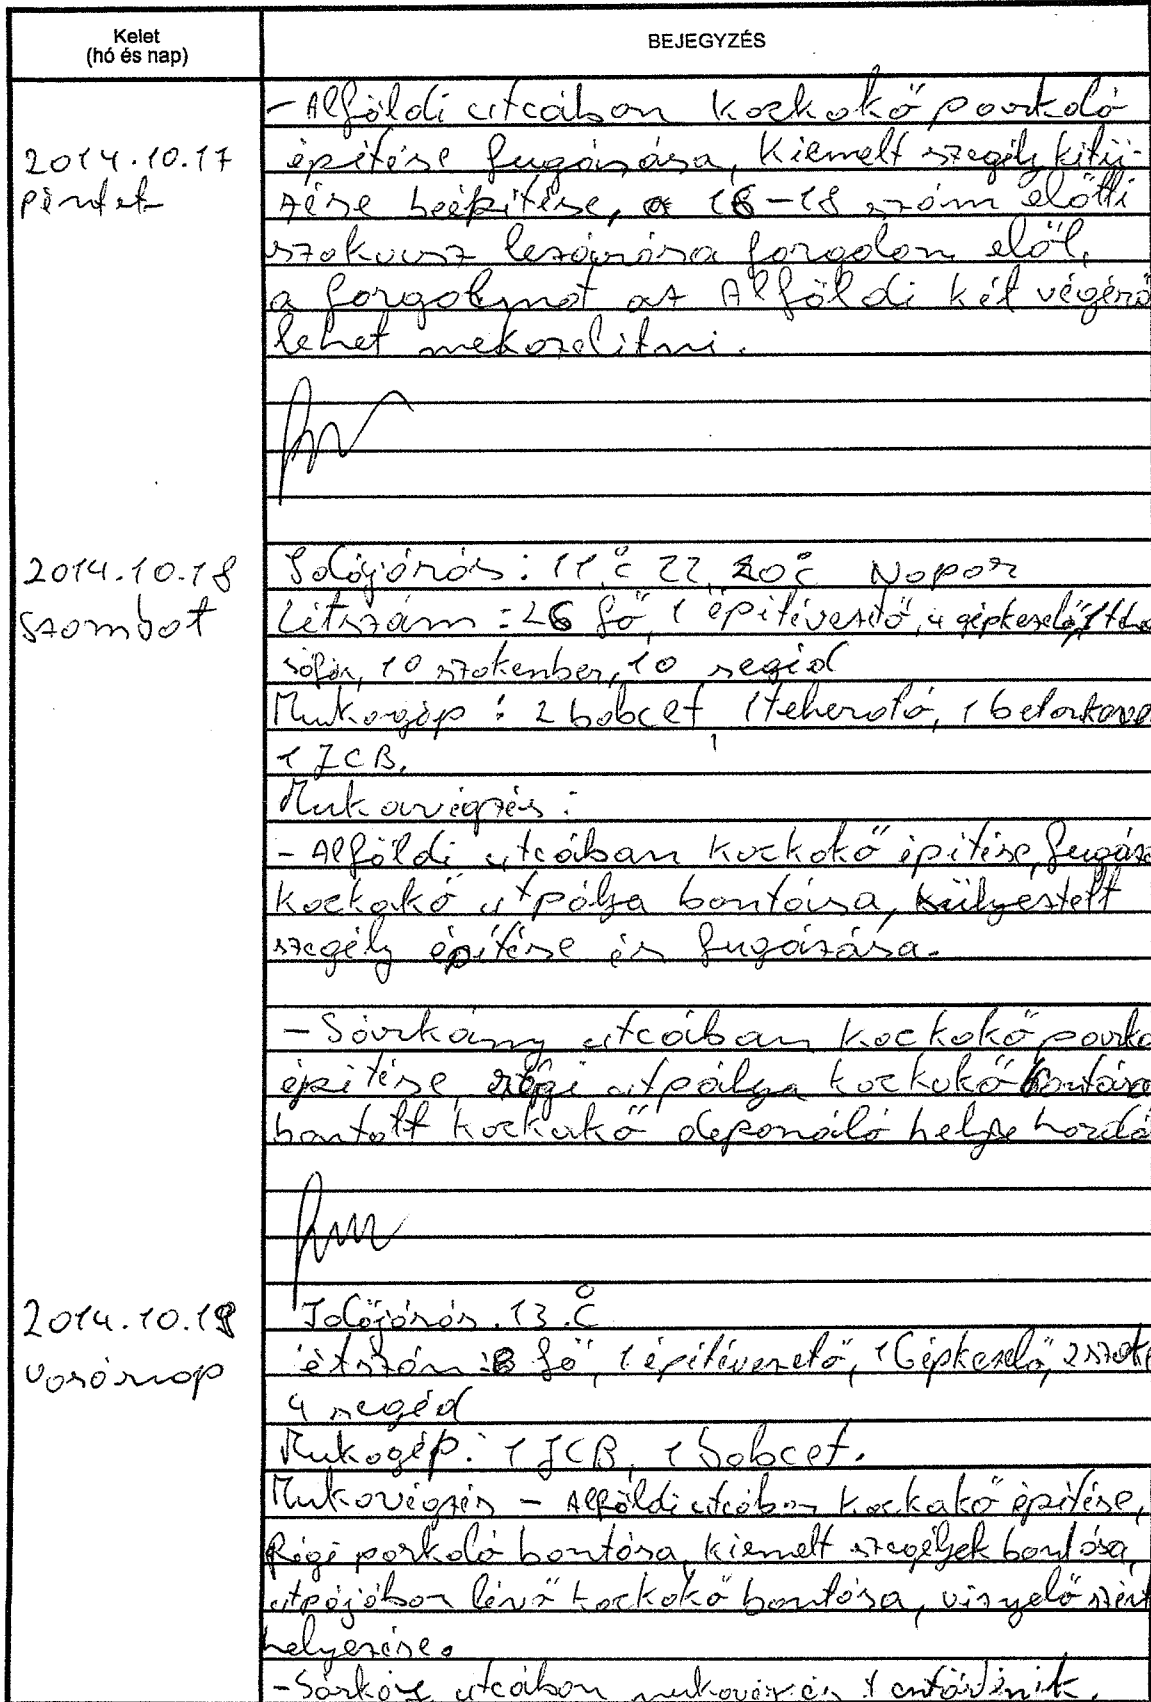 Kelet
(hó és nap)
BEJEGYZÉS
- Alföldi utcában kockakő parkoló
2014.10.17
péntek
építése fugázása, Kiemelt szegély kitű-
zése beépítése, a 16-18 szám előtti
szakasz lezárása forgalom elől,
a forgalmat az Alföldi két végérő
lehet mekozelitni.
2014.10.18
szombat
Időjárás: 11 °C 22, 20 °C Napos
Létszám: 26 fő, 1 építésvezető, 4 gépkezelő, 1 teho
sofőr, 10 szakember, 10 segéd
Munkagép: 2 bobcat 1 teherautó, 1 betonkeve
1 JCB.
Munkavégzés:
- Alföldi utcában kockakő építése, fugáz
kockakő utpálya bontása, sülyestett
szegély építése és fugázása.
- Sárkány utcában kockakő parko
építése, régi utpálya kockakő bontása
bontott kockakő deponáló helyre hordá
2014.10.19
vasárnap
Időjárás. 13 °C
étszám: 8 fő, 1 építésvezető, 1 Gépkezelő, 2 szake
4 segéd
Munkagép: 1 JCB, 1 bobcat.
Munkavégzés - Alföldi utcában kockakő építése,
Régi parkoló bontása, kiemelt szegélyek bontása,
utpájában lévő kockakő bontása, viznyelő szint
helyezése.
- Sárkány utcában munkavégzés